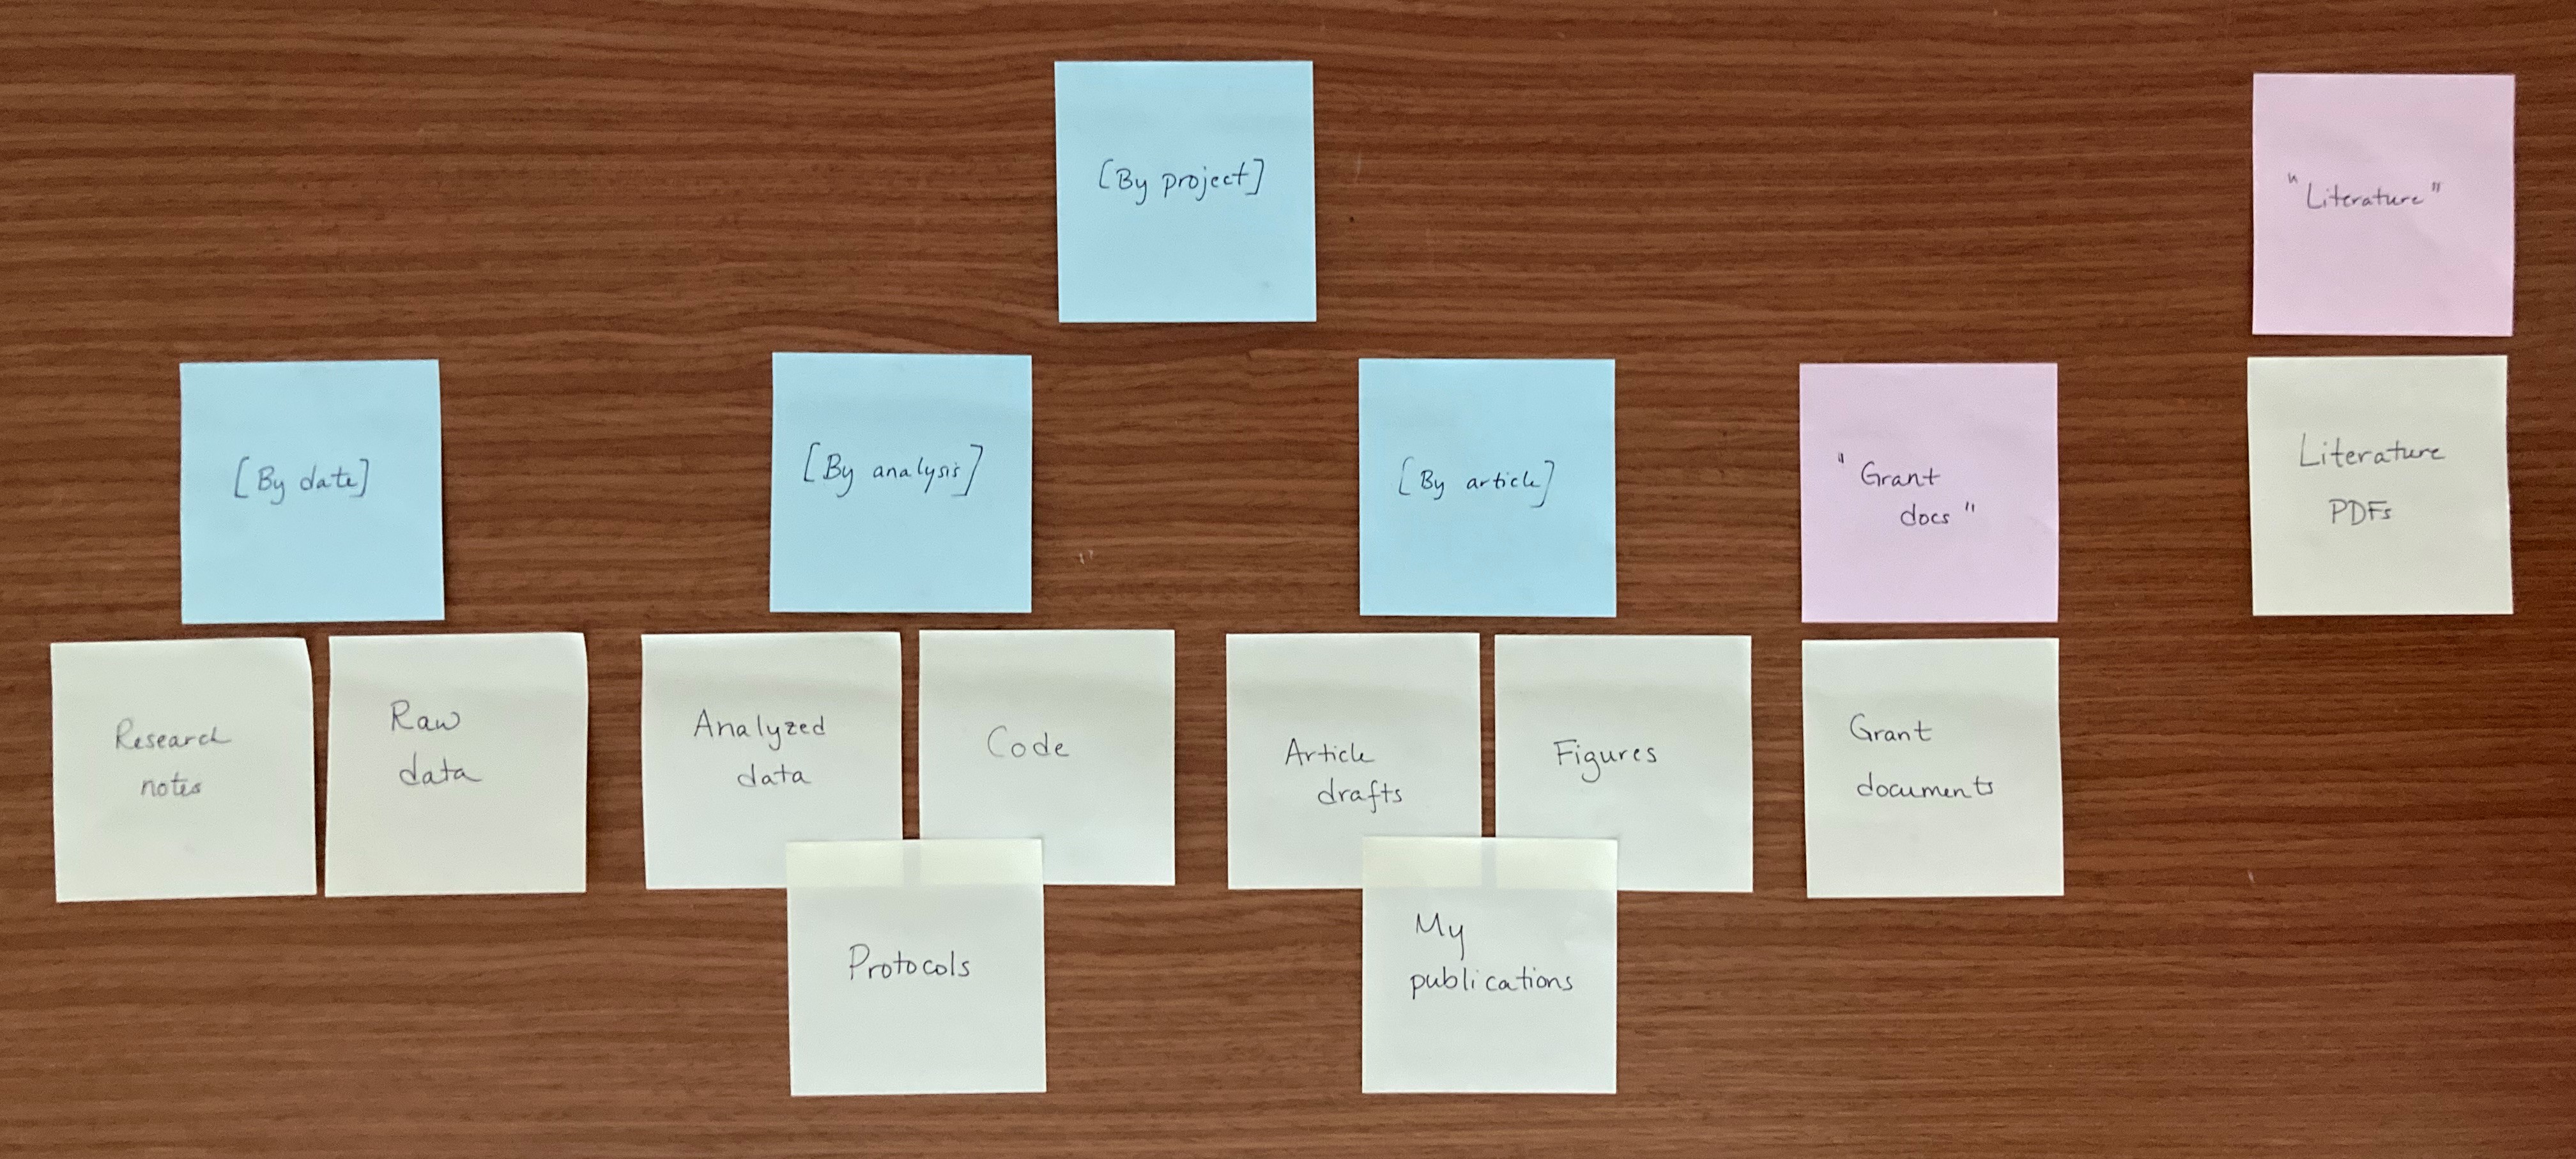 [By project]
"Literature"
[By date]
[By analysis]
[By article]
"Grant
docs"
Literature
PDFs
Research
notes
Raw
data
Analyzed
data
Code
Article
drafts
Figures
Grant
documents
Protocols
My
publications